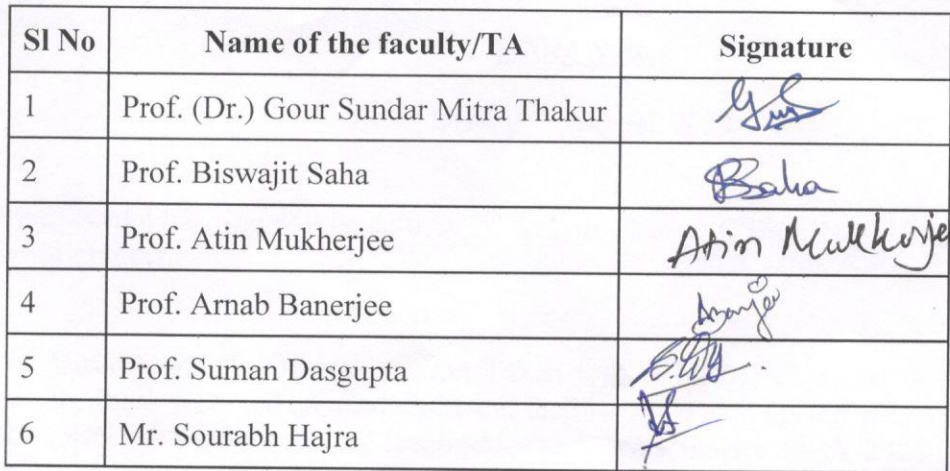 Sl No Name of the faculty/TA Signature
1 Prof. (Dr.) Gour Sundar Mitra Thakur
2 Prof. Biswajit Saha BSaha
3 Prof. Atin Mukherjee Atin Mukherjee
4 Prof. Arnab Banerjee
5 Prof. Suman Dasgupta
6 Mr. Sourabh Hajra